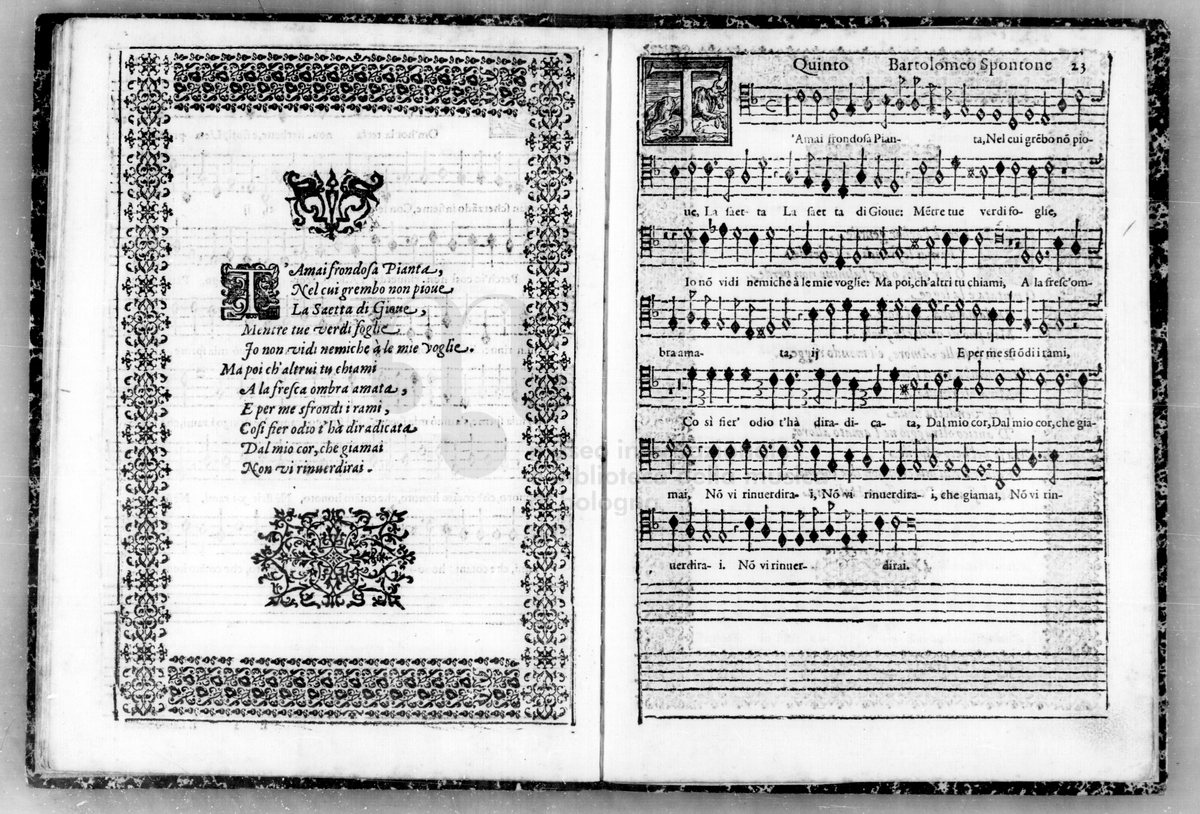 T'Amai frondosa Pianta,
Nel cui grembo non pioue
La Saetta di Gioue,
Mentre tue verdi foglie
Io non vidi nemiche à le mie voglie.
Ma poi ch'altrui tu chiami
A la fresca ombra amata,
E per me sfrondi i rami,
Cosi fier odio t'hà diradicata
Dal mio cor, che giamai
Non vi rinuerdirai.
Quinto Bartolomeo Spontone 23
T'Amai frondosa Pian- ta, Nel cui grēbo nō pio-
ue, La saet- ta La saet ta di Gioue: Mētre tue verdi fo- glie,
Io nō vidi nemiche à le mie voglie: Ma poi, ch'altri tu chiami, A la fresc'om-
bra ama- ta, ij E per me sfrōdi i rami,
Co si fier' odio t'hà dira- di- ca- ta, Dal mio cor, Dal mio cor, che gia-
mai, Nō vi rinuerdira- i, Nō vi rinuerdira- i, che giamai, Nō vi rin-
uerdira- i. Nō vi rinuer- dirai.